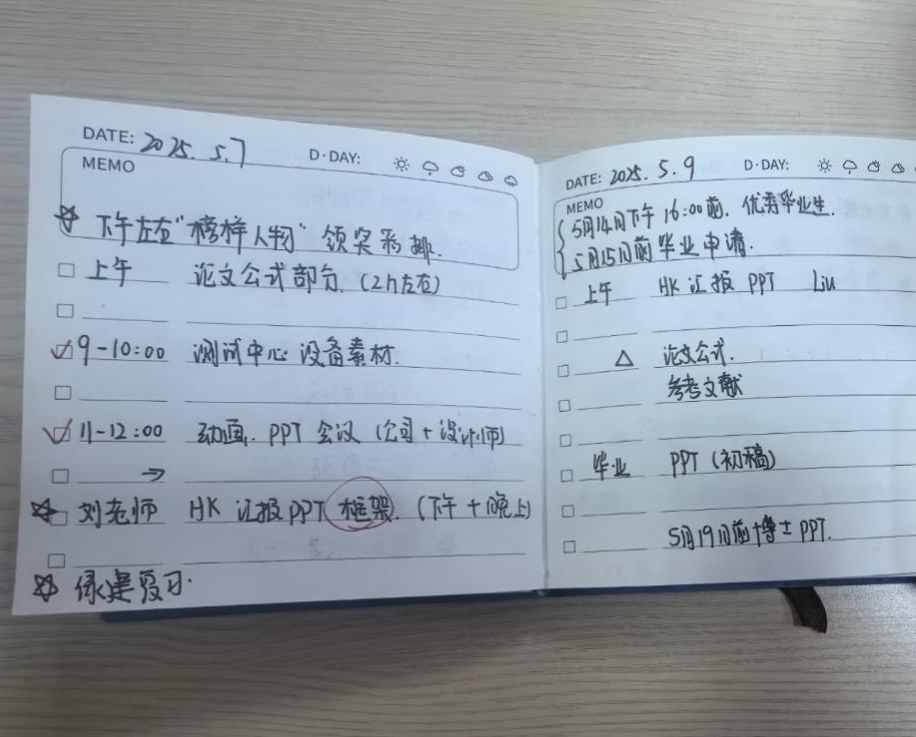 DATE: 2025. 5.7 D·DAY:
MEMO
下午左右"榜样人物"领奖彩排.
上午 论文公式部分. (2h左右)
9-10:00 测试中心 设备素材.
11-12:00 动画. PPT 会议 (公司+设计师)
→
刘老师 HK 汇报PPT 框架. (下午+晚上)
绿建复习.
DATE: 2025. 5. 9 D·DAY:
MEMO
5月14日下午16:00前. 优秀毕业生.
5月15日前 毕业申请.
上午 HK 汇报 PPT Liu
△ 论文公式.
参考文献
毕业 PPT (初稿)
5月19日前 博士 PPT.